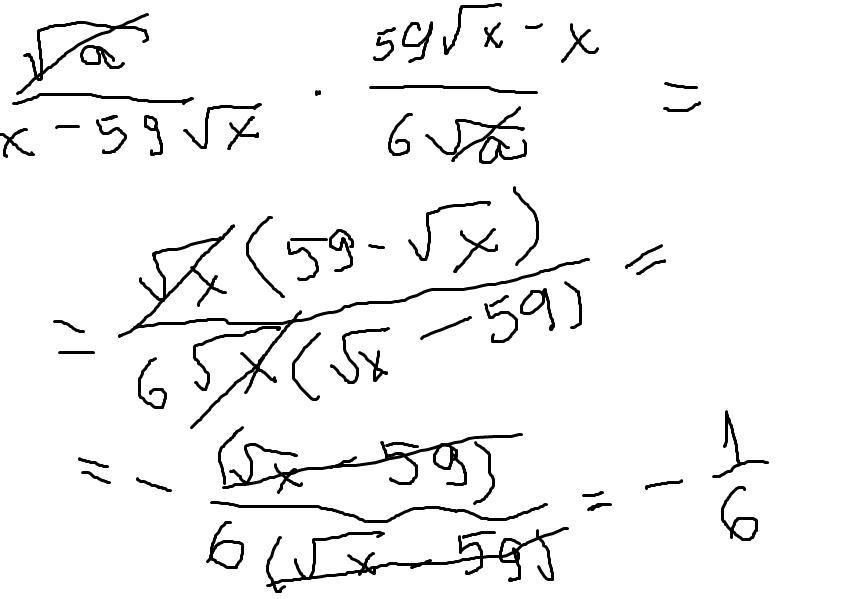 √a / (x - 59√x) · (59√x - x) / (6√a) =
= √x (59 - √x) / (6√x (√x - 59)) =
= - (√x - 59) / (6 (√x - 59)) = - 1/6